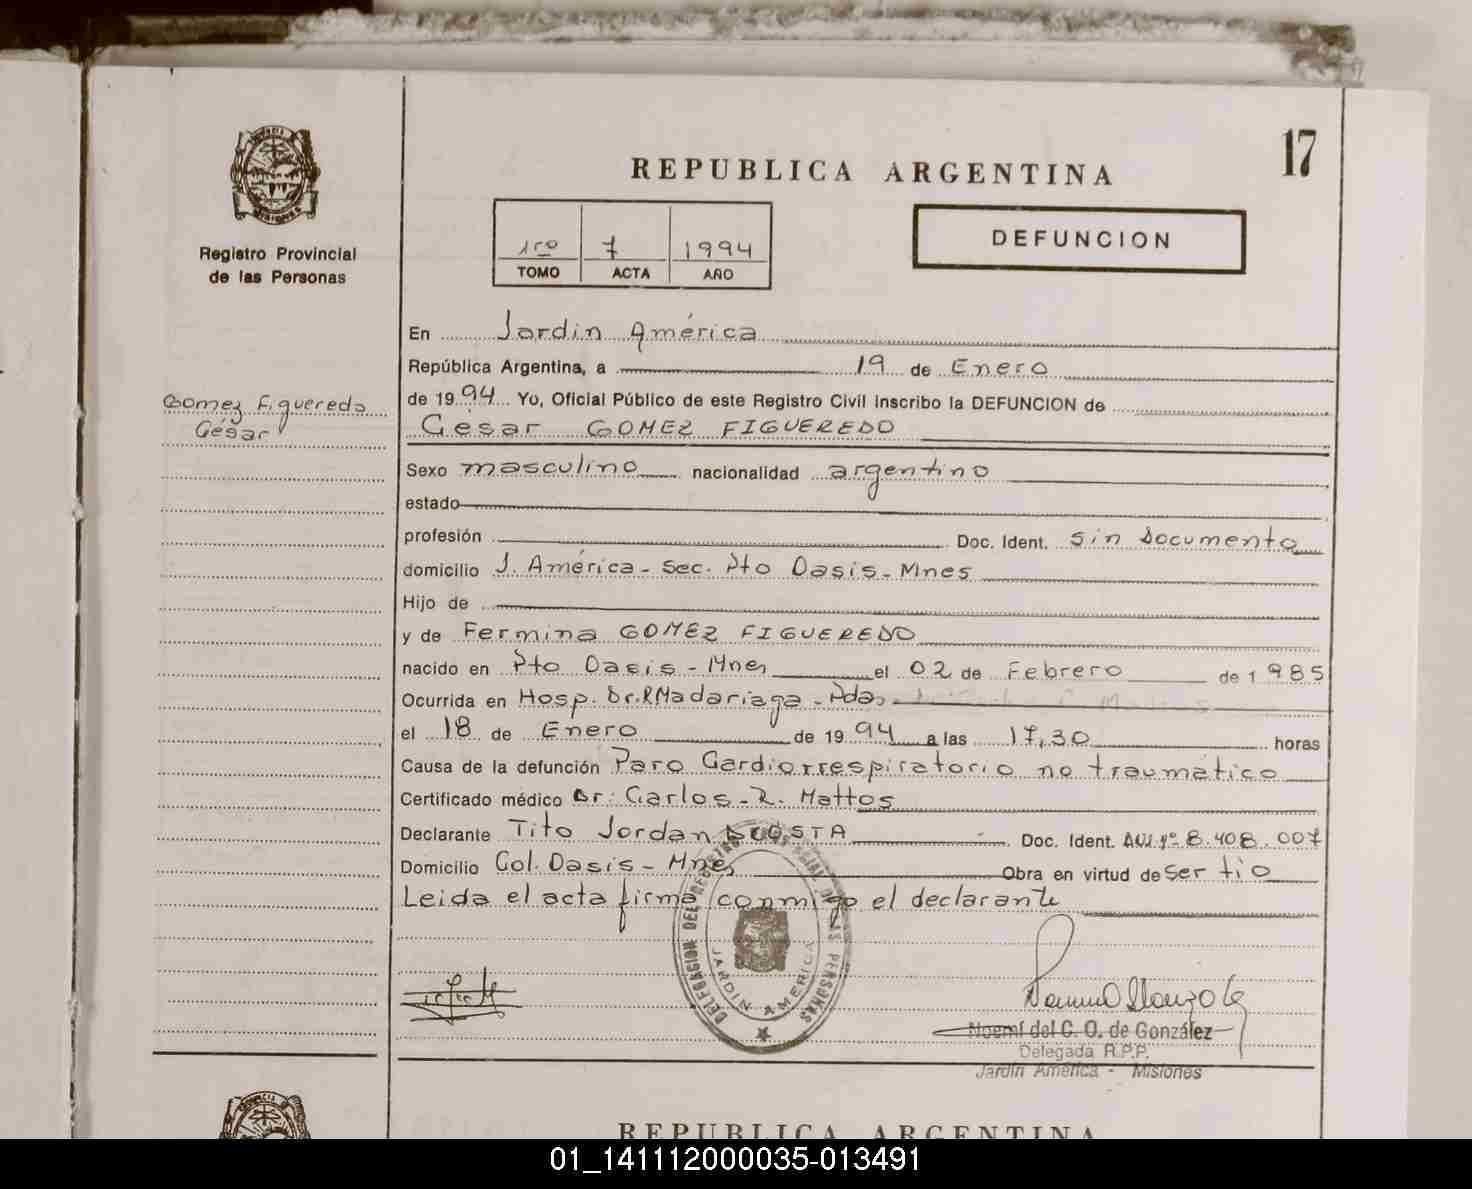 17
REPUBLICA ARGENTINA
DEFUNCION
1ro 7 1994
TOMO ACTA AÑO
Registro Provincial
de las Personas
En Jardin América
República Argentina, a 19 de Enero
de 1994 Yo, Oficial Público de este Registro Civil inscribo la DEFUNCION de
Gomez Figueredo
César
César GOMEZ FIGUEREDO
Sexo masculino nacionalidad argentino
estado
profesión Doc. Ident. sin documento
domicilio J. América - Sec. Pto Oasis - Mnes
Hijo de
y de Fermina GOMEZ FIGUEREDO
nacido en Pto Oasis - Mnes el 02 de Febrero de 1985
Ocurrida en Hosp. Dr. R Madariaga - Pdas
el 18 de Enero de 1994 a las 17,30 horas
Causa de la defunción Paro Cardiorrespiratorio no traumático
Certificado médico Dr: Carlos - R. Mattos
Declarante Tito Jordan ACOSTA Doc. Ident. Nº 8.408.007
Domicilio Col. Oasis - Mnes Obra en virtud de ser tío
Leida el acta firma conmigo el declarante
DELEGACION DEL REGISTRO PROVINCIAL DE LAS PERSONAS
JARDIN AMERICA
Noemí del C. O. de González
Delegada R.P.P.
Jardín América - Misiones
REPUBLICA ARGENTINA
01_141112000035-013491